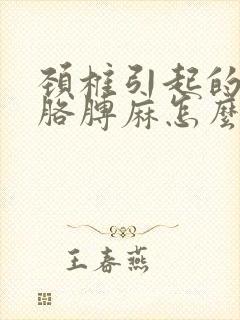 頚椎引起的
胳膊麻怎麼
王春燕